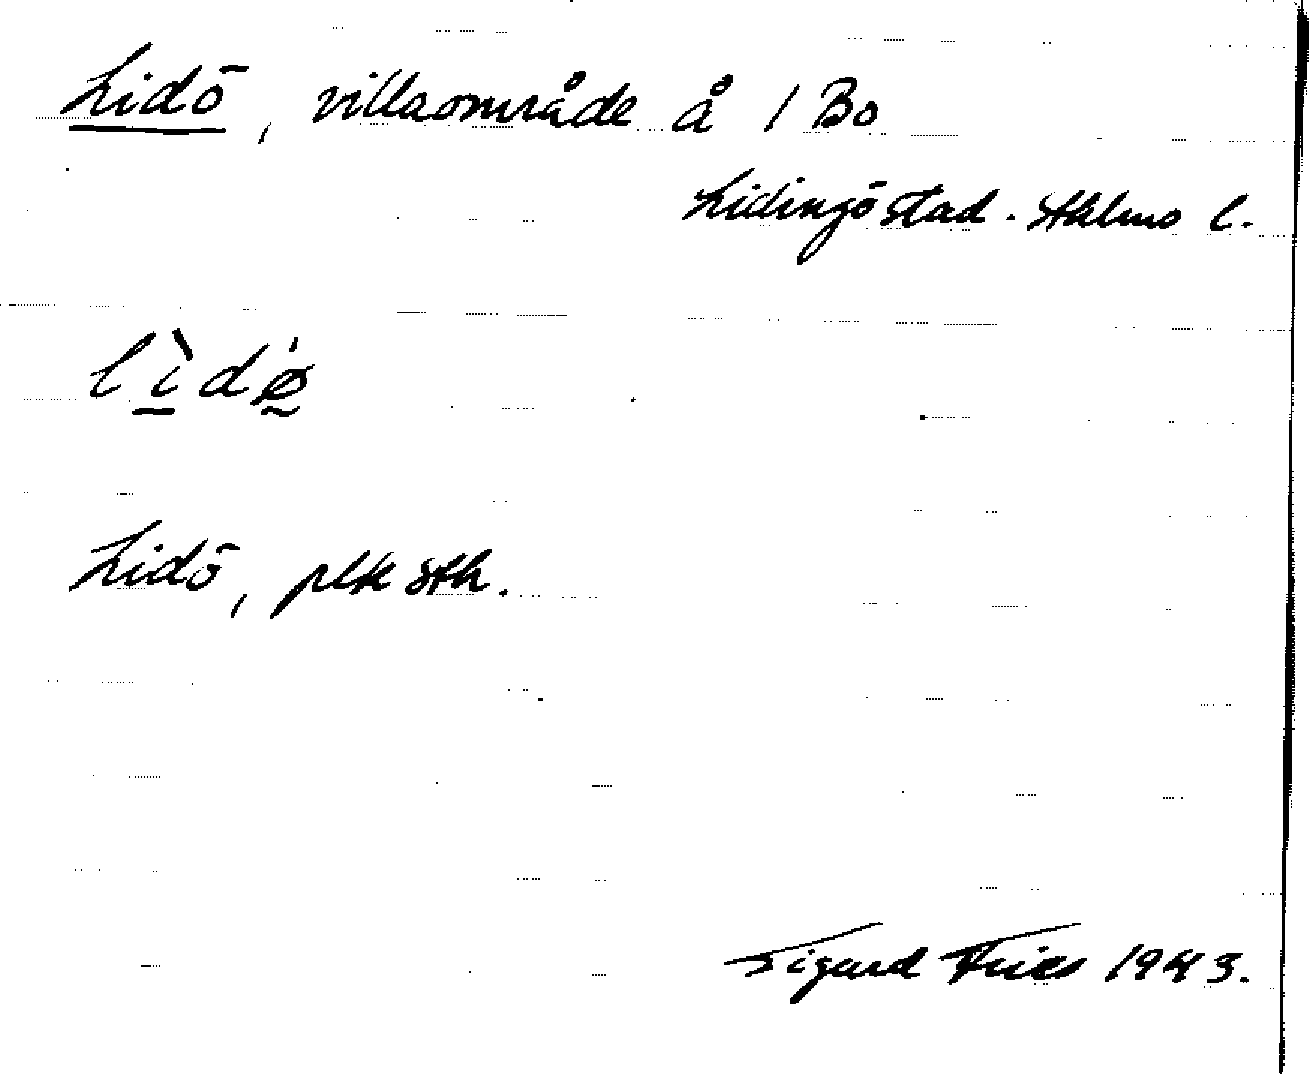 Lidö, villaområde å 1 Bo
Lidingö stad. Sthlms l.
lìdø
Lidö, plk Sth.
Sigurd Fries 1943.